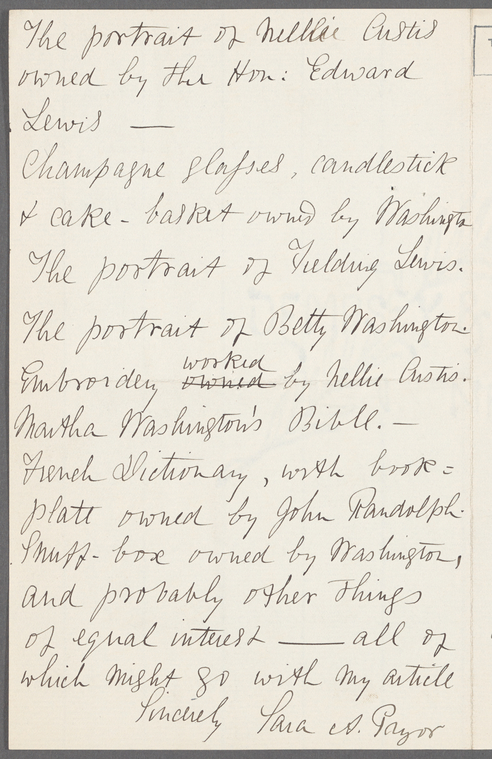 The portrait of Nellie Custis
owned by the Hon: Edward
Lewis —
Champagne glasses, candlestick
& cake-basket owned by Washington
The portrait of Fielding Lewis.
The portrait of Betty Washington.
worked
Embroidery owned by Nellie Custis.
Martha Washington's Bible. —
French Dictionary, with book=
plate owned by John Randolph.
Snuff-box owned by Washington,
and probably other things
of equal interest — all of
which might go with my article
Sincerely Sara A. Pryor